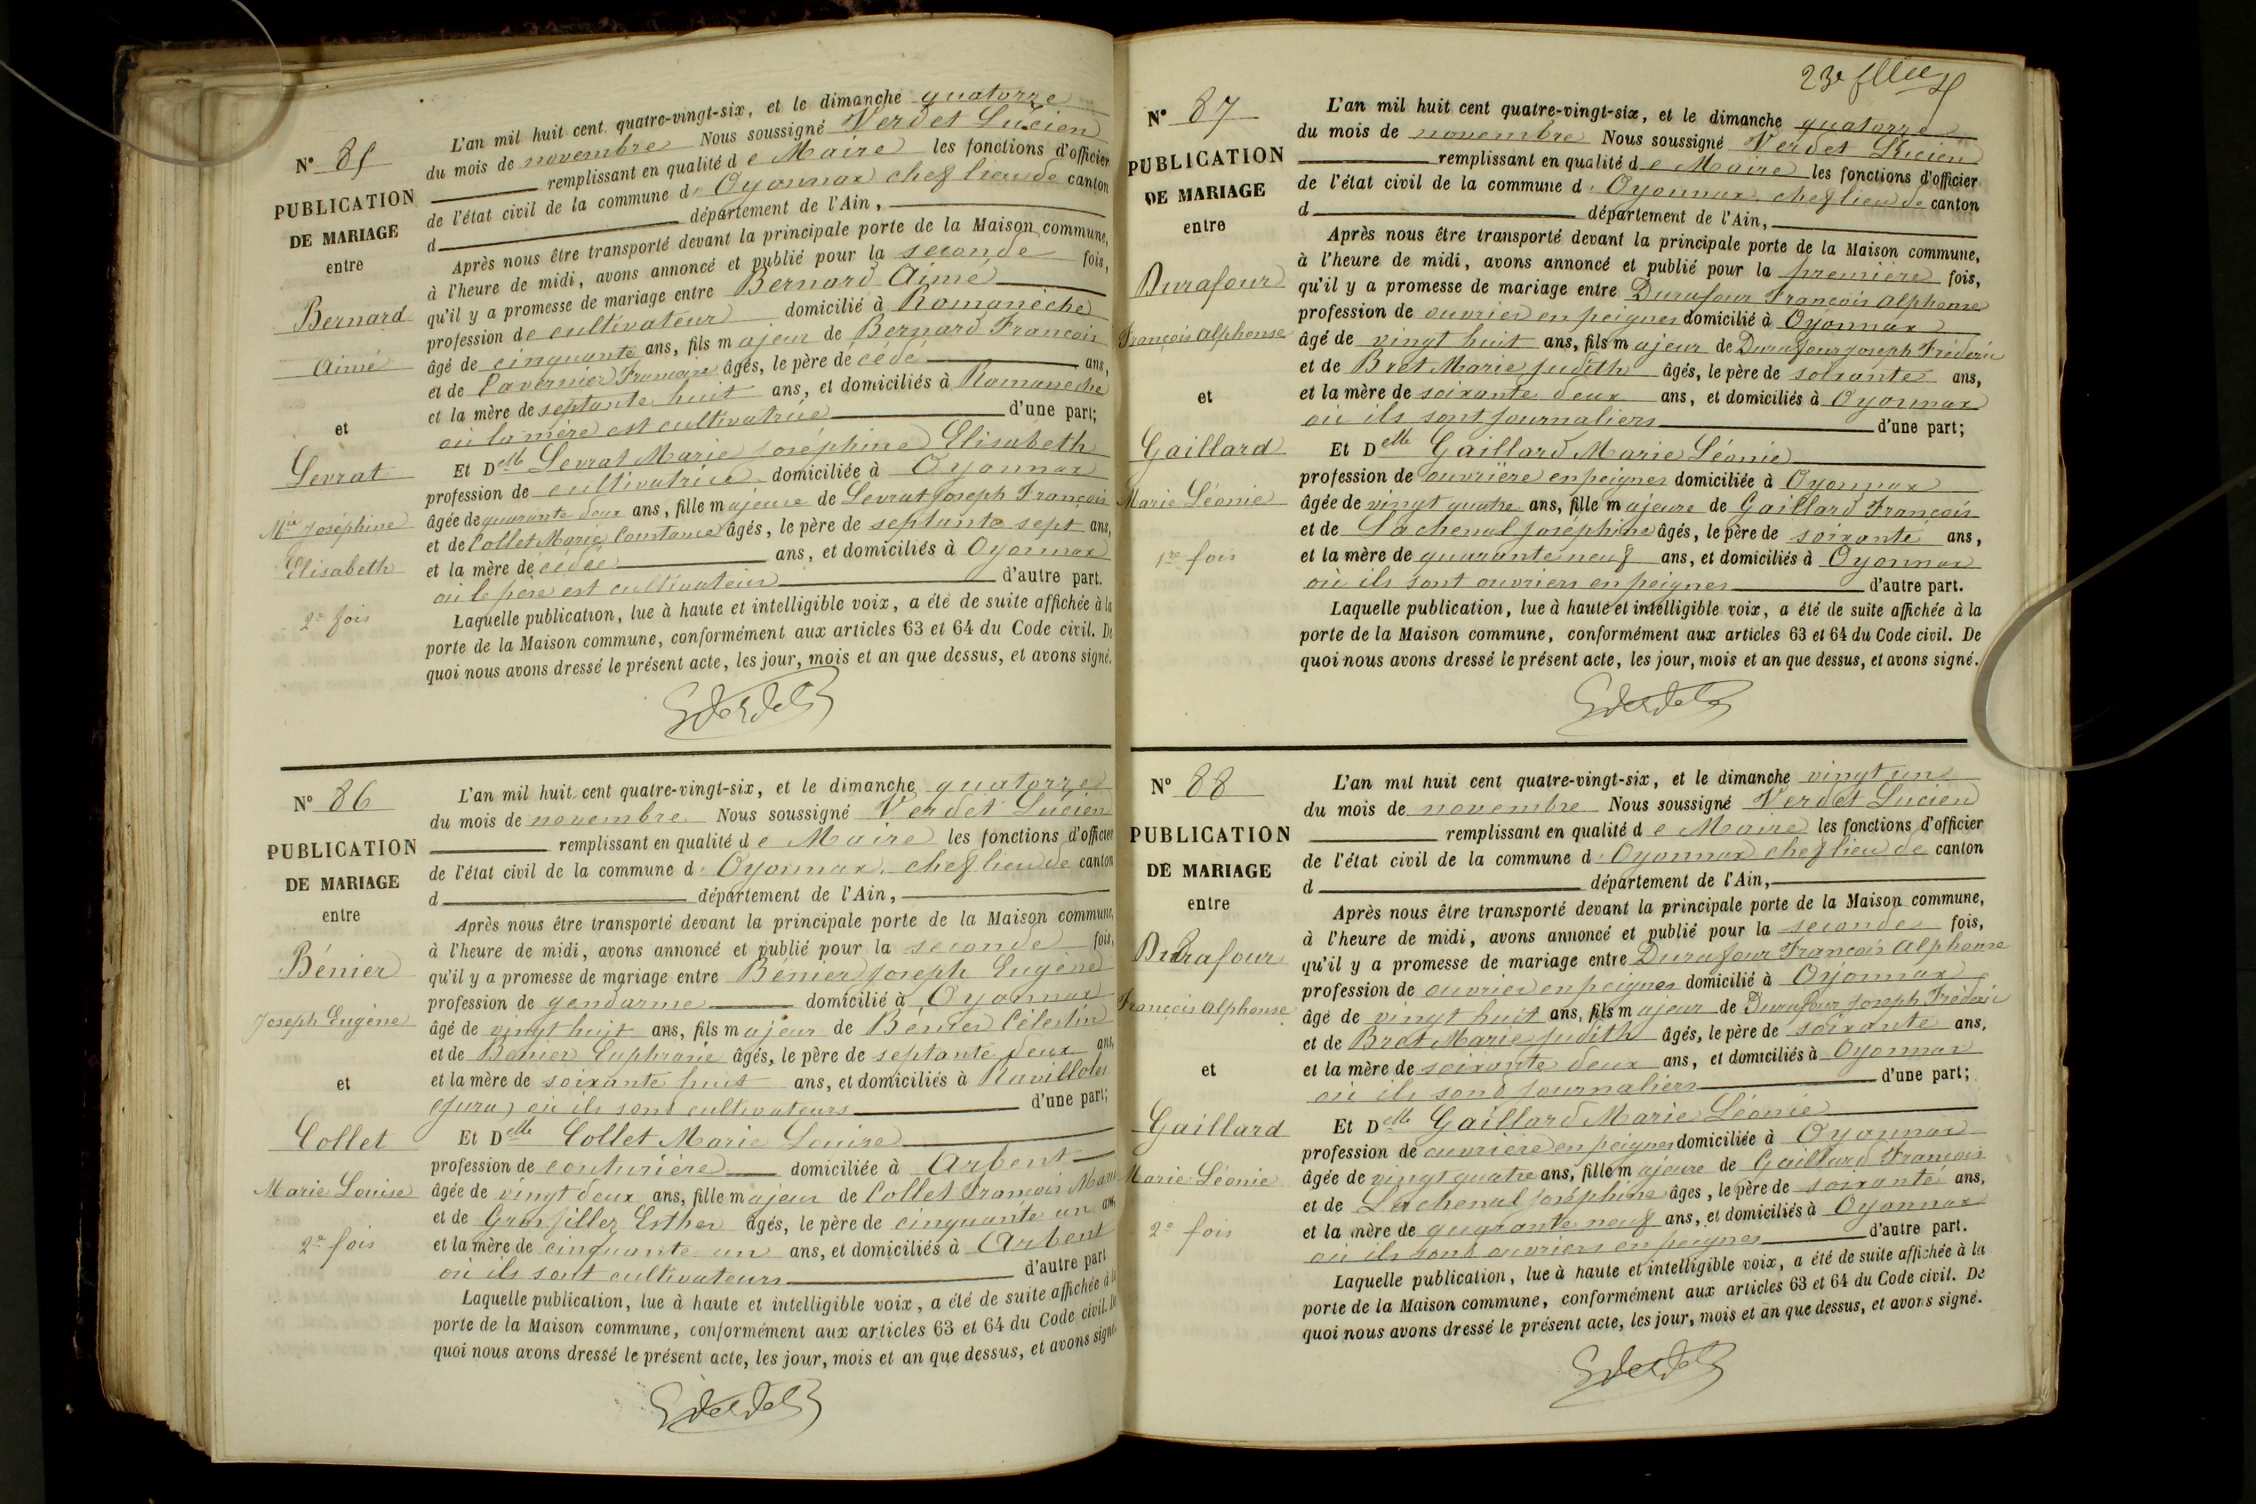 N° 85
PUBLICATION
DE MARIAGE
entre
Bernard
Aimé
et
Levrat
Mie Joséphine
Elisabeth
2e fois
L'an mil huit cent quatre-vingt-six, et le dimanche quatorze
du mois de novembre Nous soussigné Verdet Lucien
remplissant en qualité de Maire les fonctions d'officier
de l'état civil de la commune d'Oyonnax chef lieu de canton
d département de l'Ain,
Après nous être transporté devant la principale porte de la Maison commune,
à l'heure de midi, avons annoncé et publié pour la seconde fois,
qu'il y a promesse de mariage entre Bernard Aimé
profession de cultivateur domicilié à Romanèche
âgé de cinquante ans, fils majeur de Bernard François
et de âgés, le père décédé ans,
et la mère de septante huit ans, et domiciliés à Romanèche
où la mère est cultivatrice d'une part;
Et Delle Levrat Marie Joséphine Elisabeth
profession de cultivatrice domiciliée à Oyonnax
âgée de quarante deux ans, fille majeure de Levrat Joseph François
et de Collet Marie Constance âgés, le père de septante sept ans,
et la mère décédée ans, et domiciliés à Oyonnax
où le père est cultivateur d'autre part.
Laquelle publication, lue à haute et intelligible voix, a été de suite affichée à la
porte de la Maison commune, conformément aux articles 63 et 64 du Code civil. De
quoi nous avons dressé le présent acte, les jour, mois et an que dessus, et avons signé.
N° 86
PUBLICATION
DE MARIAGE
entre
Bénier
Joseph Eugène
et
Collet
Marie Louise
2e fois
L'an mil huit cent quatre-vingt-six, et le dimanche quatorze
du mois de novembre Nous soussigné Verdet Lucien
remplissant en qualité de Maire les fonctions d'officier
de l'état civil de la commune d'Oyonnax, chef lieu de canton
d département de l'Ain,
Après nous être transporté devant la principale porte de la Maison commune,
à l'heure de midi, avons annoncé et publié pour la seconde fois,
qu'il y a promesse de mariage entre Bénier Joseph Eugène
profession de gendarme domicilié à Oyonnax
âgé de vingt huit ans, fils majeur de Bénier Célestin
et de Bénier Euphrasie âgés, le père de septante deux ans,
et la mère de soixante huit ans, et domiciliés à Ravilloles
(Jura) où ils sont cultivateurs d'une part;
Et Delle Collet Marie Louise
profession de couturière domiciliée à Arbent
âgée de vingt deux ans, fille majeur de Collet François Marie
et de Grosfillez Esther âgés, le père de cinquante un ans,
et la mère de cinquante un ans, et domiciliés à Arbent
où ils sont cultivateurs d'autre part
Laquelle publication, lue à haute et intelligible voix, a été de suite affichée à la
porte de la Maison commune, conformément aux articles 63 et 64 du Code civil. De
quoi nous avons dressé le présent acte, les jour, mois et an que dessus, et avons signé.
23e
N° 87
PUBLICATION
DE MARIAGE
entre
Durafour
François Alphonse
et
Gaillard
Marie Léonie
1re fois
L'an mil huit cent quatre-vingt-six, et le dimanche quatorze
du mois de novembre Nous soussigné Verdet Lucien
remplissant en qualité de Maire les fonctions d'officier
de l'état civil de la commune d'Oyonnax, chef lieu de canton
d département de l'Ain,
Après nous être transporté devant la principale porte de la Maison commune,
à l'heure de midi, avons annoncé et publié pour la première fois,
qu'il y a promesse de mariage entre Durafour François Alphonse
profession de ouvrier en peignes domicilié à Oyonnax
âgé de vingt huit ans, fils majeur de Durafour Joseph Fréderic
et de Bret Marie Judith âgés, le père de soixante ans,
et la mère de soixante deux ans, et domiciliés à Oyonnax
où ils sont journaliers d'une part;
Et Delle Gaillard Marie Léonie
profession de ouvrière en peignes domiciliée à Oyonnax
âgée de vingt quatre ans, fille majeure de Gaillard François
et de Lachenal Joséphine âgés, le père de soixante ans,
et la mère de quarante neuf ans, et domiciliés à Oyonnax
où ils sont ouvriers en peignes d'autre part.
Laquelle publication, lue à haute et intelligible voix, a été de suite affichée à la
porte de la Maison commune, conformément aux articles 63 et 64 du Code civil. De
quoi nous avons dressé le présent acte, les jour, mois et an que dessus, et avons signé.
N° 88
PUBLICATION
DE MARIAGE
entre
Durafour
François Alphonse
et
Gaillard
Marie Léonie
2e fois
L'an mil huit cent quatre-vingt-six, et le dimanche vingt un
du mois de novembre Nous soussigné Verdet Lucien
remplissant en qualité de Maire les fonctions d'officier
de l'état civil de la commune d'Oyonnax chef lieu de canton
d département de l'Ain,
Après nous être transporté devant la principale porte de la Maison commune,
à l'heure de midi, avons annoncé et publié pour la seconde fois,
qu'il y a promesse de mariage entre Durafour François Alphonse
profession de ouvrier en peignes domicilié à Oyonnax
âgé de vingt huit ans, fils majeur de Durafour Joseph Fréderic
et de Bret Marie Judith âgés, le père de soixante ans,
et la mère de soixante deux ans, et domiciliés à Oyonnax
où ils sont journaliers d'une part;
Et Delle Gaillard Marie Léonie
profession de ouvrière en peignes domiciliée à Oyonnax
âgée de vingt quatre ans, fille majeure de Gaillard François
et de Lachenal Joséphine âges, le père de soixante ans,
et la mère de quarante neuf ans, et domiciliés à Oyonnax
où ils sont ouvriers en peignes d'autre part.
Laquelle publication, lue à haute et intelligible voix, a été de suite affichée à la
porte de la Maison commune, conformément aux articles 63 et 64 du Code civil. De
quoi nous avons dressé le présent acte, les jour, mois et an que dessus, et avons signé.